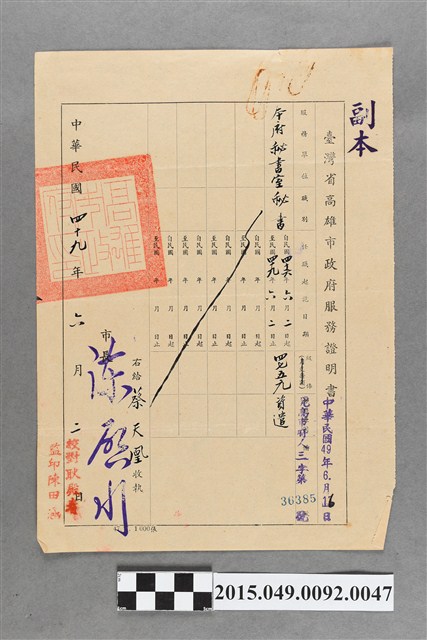 副本
臺灣省高雄市政府服務證明書
中華民國49年6月16日
人三字第
36385
號
服務單位
職別
到職起訖日期
本府秘書室秘書
自民國四六年六月二日起
至民國四九年六月二日止
四七五九 首遣
自民國 年 月 日起
至民國 年 月 日止
自民國 年 月 日起
至民國 年 月 日止
自民國 年 月 日起
至民國 年 月 日止
右給 蔡天凰 收執
市長
陳啟川
中華民國四十九年六月二日
校對耿
監印陳田
1000張
2015.049.0092.0047